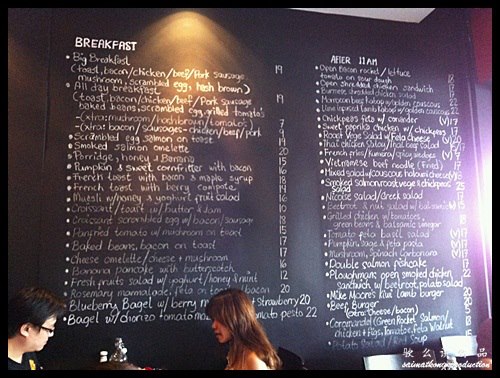 BREAKFAST
• Big Breakfast
(toast, bacon/chicken/beef/Pork sausage 19
mushroom, scrambled egg, hash brown)
• All day breakfast
(toast, bacon/chicken/beef/Pork sausage 19
baked beans, scrambled egg, grilled tomato's
-(xtra: mushroom/hashbrown/tomato) 7
-(xtra: bacon/sausages-chicken/beef/pork 9
• Scrambled egg salmon on toast 14
• Smoked salmon omelette 20
• Porridge, honey & Banana 15
• Pumpkin & sweet cornfritter with bacon 16
• French toast with bacon & maple syrup 18
• French toast with berry compote 14
• Muesli w/honey & yoghurt fruit salad 16
• Croissant/toast w/ butter & jam 10
• Croissant scrambled egg w/ bacon/sausage 18
• Panfried tomato w/ mushroom on toast
• Baked beans, bacon on toast 17
• Cheese omelette/cheese + mushroom
• Banana pancake with butterscotch 16
• Fresh fruits salad w/yoghurt/honey & nut 12
• Rosemary marmalade, feta on
• Blueberry Bagel w/ berry Strawberry 20
• Bagel w/ chorizo tomato tomato pesto 22
AFTER 11AM
• Open Bacon rocket/lettuce
tomato on sour dough 18
• Open Shredded chicken sandwich
• Burmese shredded chicken salad
• Moroccan beef kabap w/golden couscous 22
• Lime apricot Lamb kabap w/golden couscous 22
• Chickpeas feta w/ coriander (V) 17
• Sweet paprika chicken w/ chickpeas 17
• Roast Vege Salad w/ Feta Cheese (V) 20
• Thai chicken Salad/Thai beef salad
• French fries/Kumera/Spicy wedges
• Vietnamese beef noodle (fried) 17
• Mixed salad w/couscous haloumi cheese
• Smoked salmon, roast vege & chickpeas
salad
• Nicoise salad/Greek salad 18
• Beetroot & nut salad w/ balsamic
• Grilled chicken w/ tomatoes,
green beans & balsamic vinegar
• Tomato feta basil salad (V) 17
• Pumpkin, Sage & feta pasta (V) 17
• Mushroom, Spinach Carbonara (V) 17
• Double salmon fishcake
• Ploughmans open smoked chicken 22
sandwich w/ beetroot, potato salad
• Mike Moore's Kiwi lamb burger 20
• Beef Burger 20
(xtra: Cheese/bacon)
• Coromandel (Green Rocket, Salmon/
chicken + Figs, Tomatoe, Feta, Walnut
• Potato Salad/Red Soup
saimatkong production